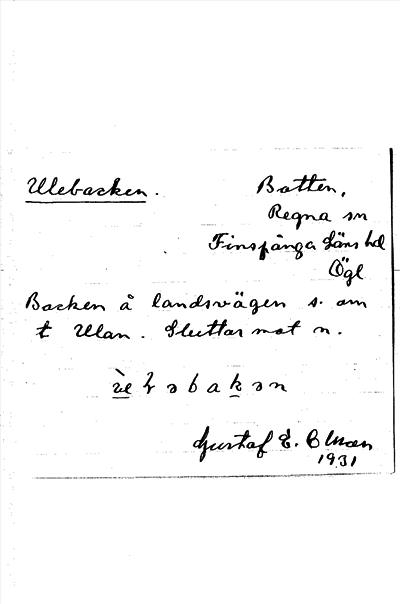 Ulebacken. Botten,
Regna sn
Finspånga Läns hd
Ögl
Backen å landsvägen s. om
t Ulan. Sluttar mot n.
Gustaf E.
1931